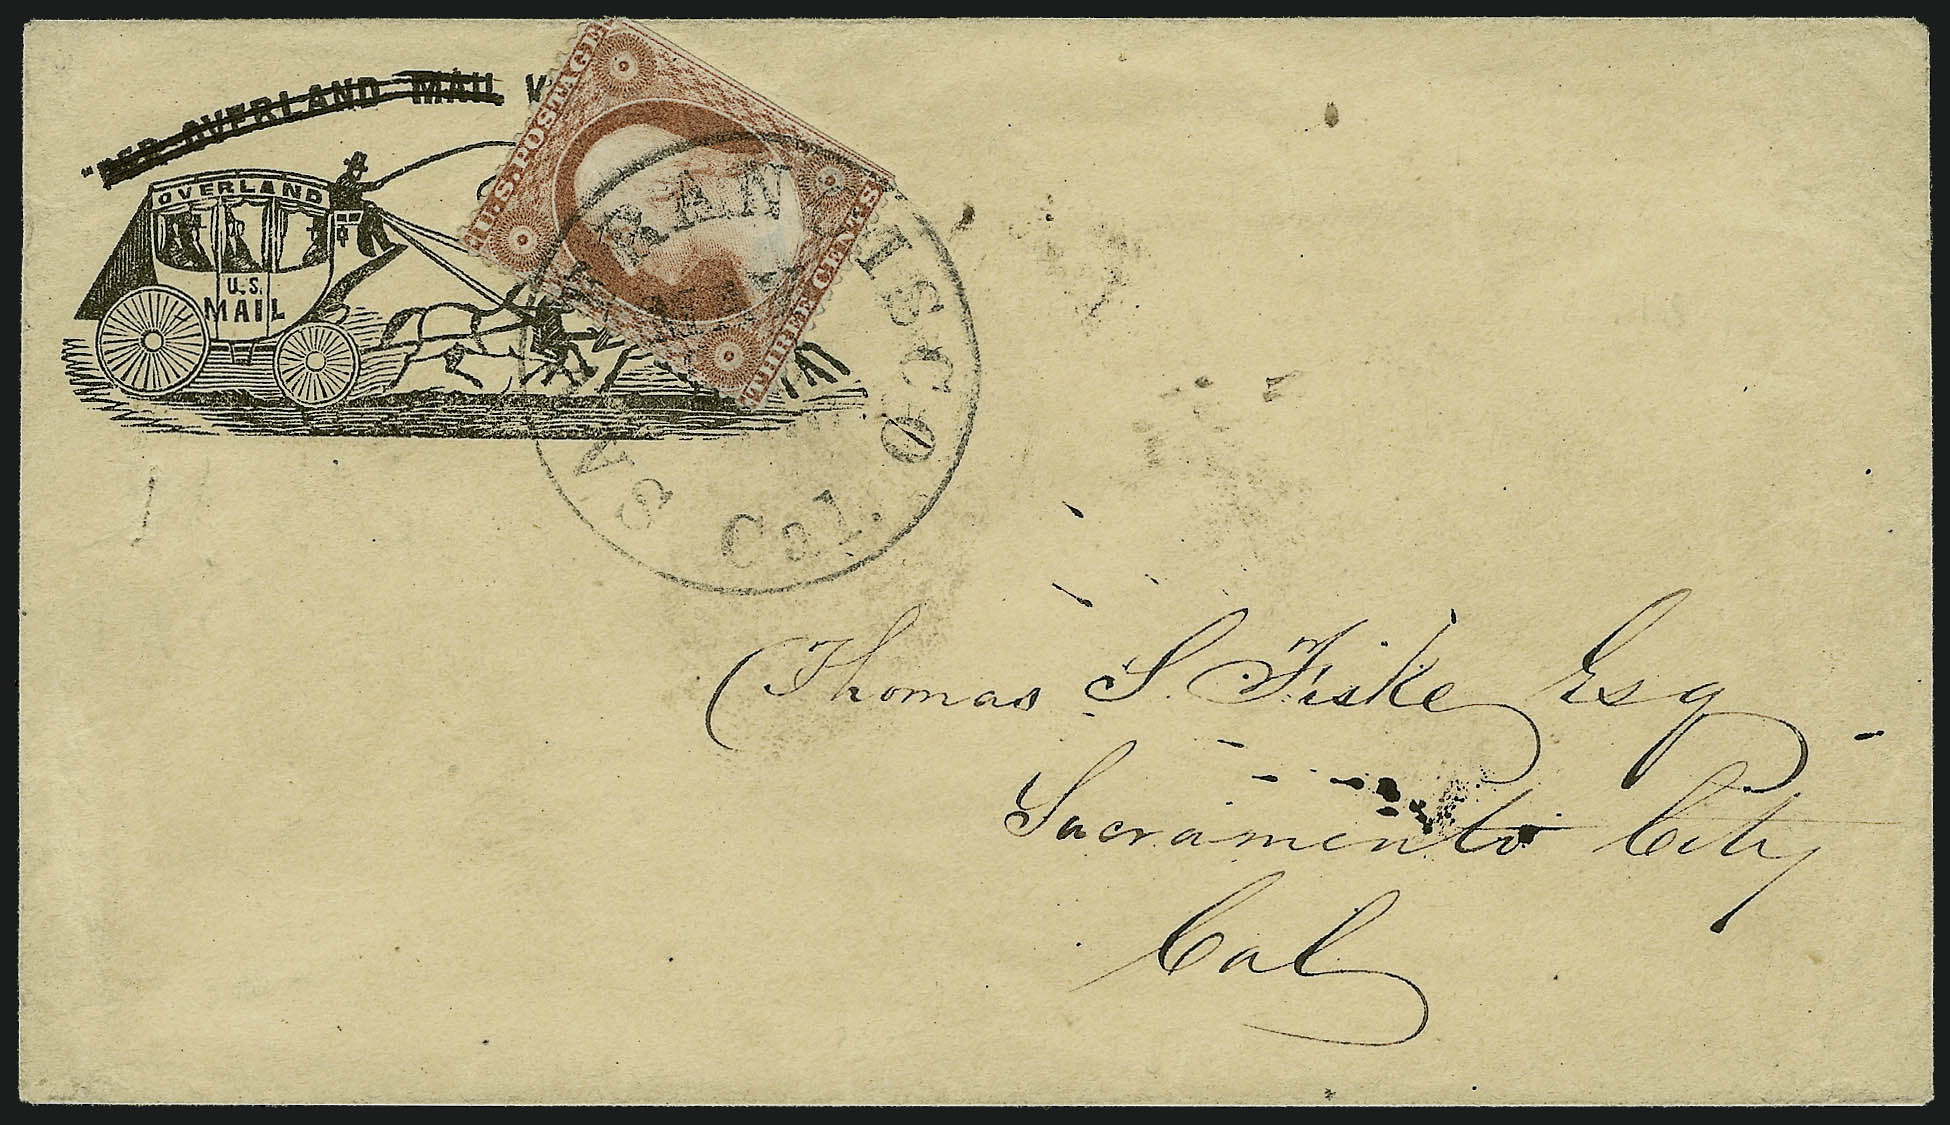 "PER OVERLAND MAIL V
OVERLAND
U.S.
MAIL
U.S. POSTAGE
THREE CENTS
SAN FRANCISCO
Cal.
Thomas S. Fiske Esq
Sacramento City
Cal